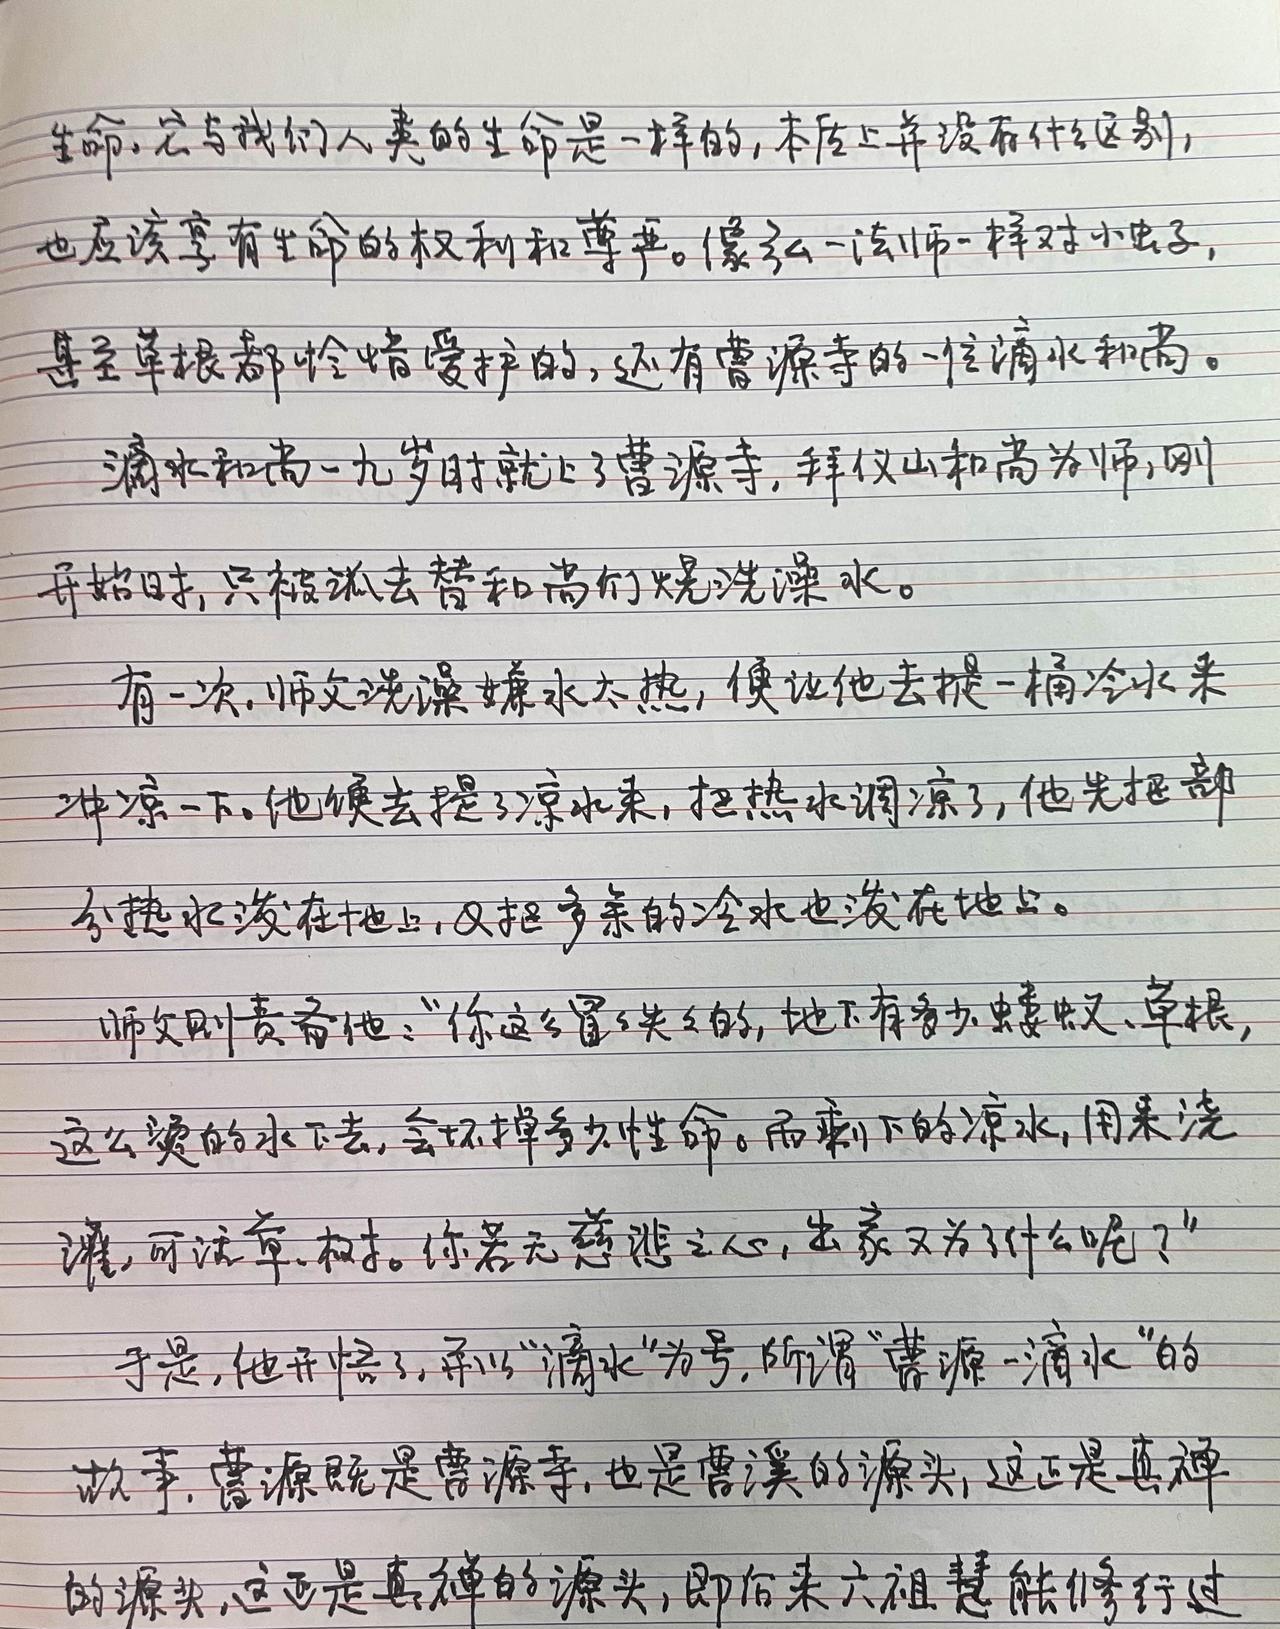 生命,它与我们人类的生命是一样的,本质上并没有什么区别,
也应该享有生命的权利和尊严。像弘一法师一样对小虫子,
甚至草根都怜惜爱护的,还有曹源寺的一位滴水和尚。
滴水和尚一九岁时就上了曹源寺,拜仪山和尚为师,刚
开始时,只被派去替和尚们烧洗澡水。
有一次,师父洗澡嫌水太热,便让他去提一桶冷水来
冲凉一下。他便去提了凉水来,把热水调凉了,他先把部
分热水泼在地上,又把多余的冷水也泼在地上。
师父则责备他:“你这么冒冒失失的,地下有多少蝼蚁、草根,
这么烫的水下去,会坏掉多少性命。而剩下的凉水,用来浇
灌,可活草、树。你若无慈悲之心,出家又为了什么呢?”
于是,他开悟了,并以“滴水”为号,所谓“曹源一滴水”的
故事,曹源既是曹源寺,也是曹溪的源头,这正是真禅
的源头,这正是真禅的源头,即后来六祖慧能修行过